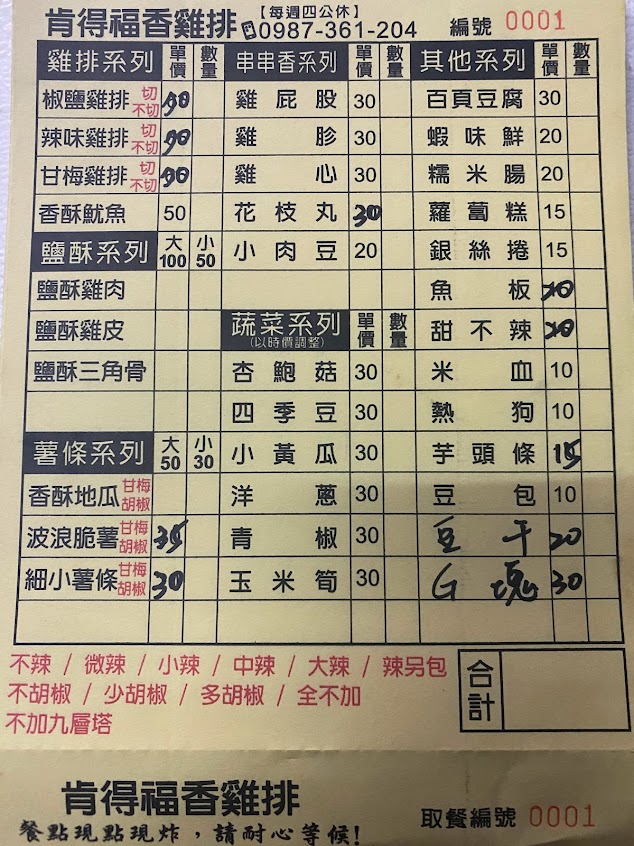 肯得福香雞排 【每週四公休】 0987-361-204 編號 0001
雞排系列 單價 數量 串串香系列 單價 數量 其他系列 單價 數量
椒鹽雞排 切 不切 雞屁股 30 百頁豆腐 30
辣味雞排 切 不切 雞胗 30 蝦味鮮 20
甘梅雞排 切 不切 雞心 30 糯米腸 20
香酥魷魚 50 花枝丸 30 蘿蔔糕 15
鹽酥系列 大100 小50 小肉豆 20 銀絲捲 15
鹽酥雞肉 魚板
鹽酥雞皮 蔬菜系列 (以時價調整) 單價 數量 甜不辣
鹽酥三角骨 杏鮑菇 30 米血 10
四季豆 30 熱狗 10
薯條系列 大50 小30 小黃瓜 30 芋頭條 15
香酥地瓜 甘梅 胡椒 洋蔥 30 豆包 10
波浪脆薯 甘梅 胡椒 35 青椒 30 豆干 20
細小薯條 甘梅 胡椒 30 玉米筍 30 G塊 30
不辣 / 微辣 / 小辣 / 中辣 / 大辣 / 辣另包
不胡椒 / 少胡椒 / 多胡椒 / 全不加
不加九層塔
合計
肯得福香雞排
餐點現點現炸，請耐心等候! 取餐編號 0001